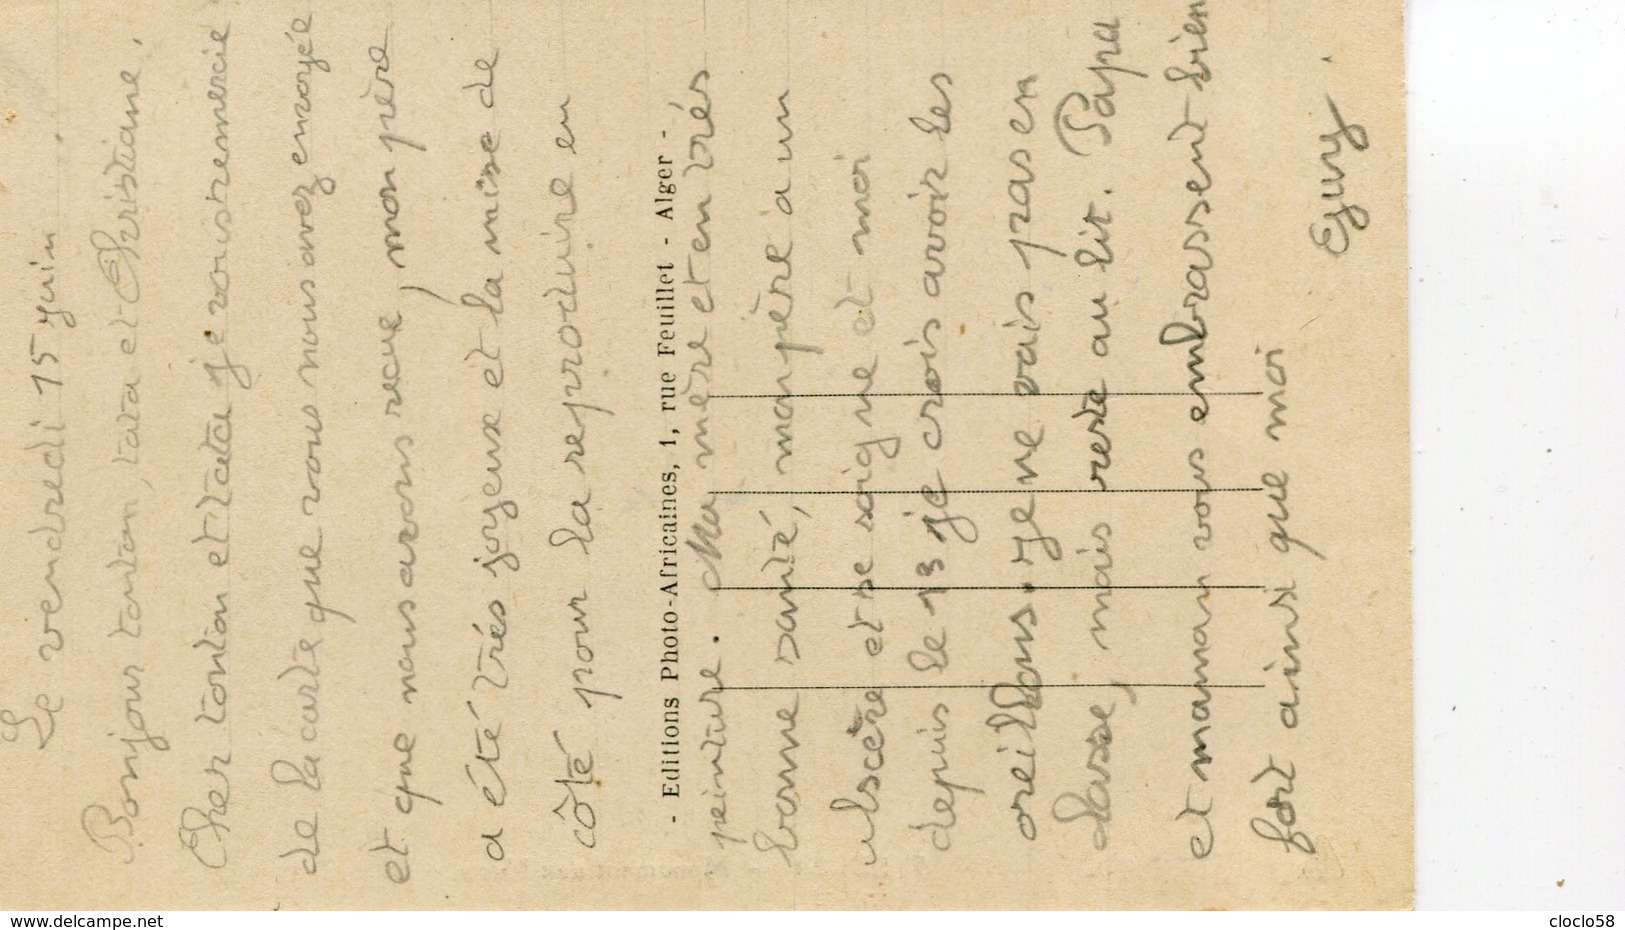 Le vendredi 15 juin.
Bonjour tonton, tata et Christiane.
Cher tonton et tata je vous remercie
de la carte que vous nous avez envoyée
et que nous avons recue, mon père
a été très joyeuse et la mise de
côté pour la reproduire en
- Editions Photo-Africaines, 1, rue Feuillet - Alger -
peinture. Ma mère et en très
bonne santé, mon père a un
ulscère et se soigne et moi
depuis le 13 je crois avoir les
oreillons. Je ne vais pas en
classe, mais reste au lit. Papa
et maman vous embrassent bien
fort ainsi que moi
Guy.
www.delcampe.net
cloclo58